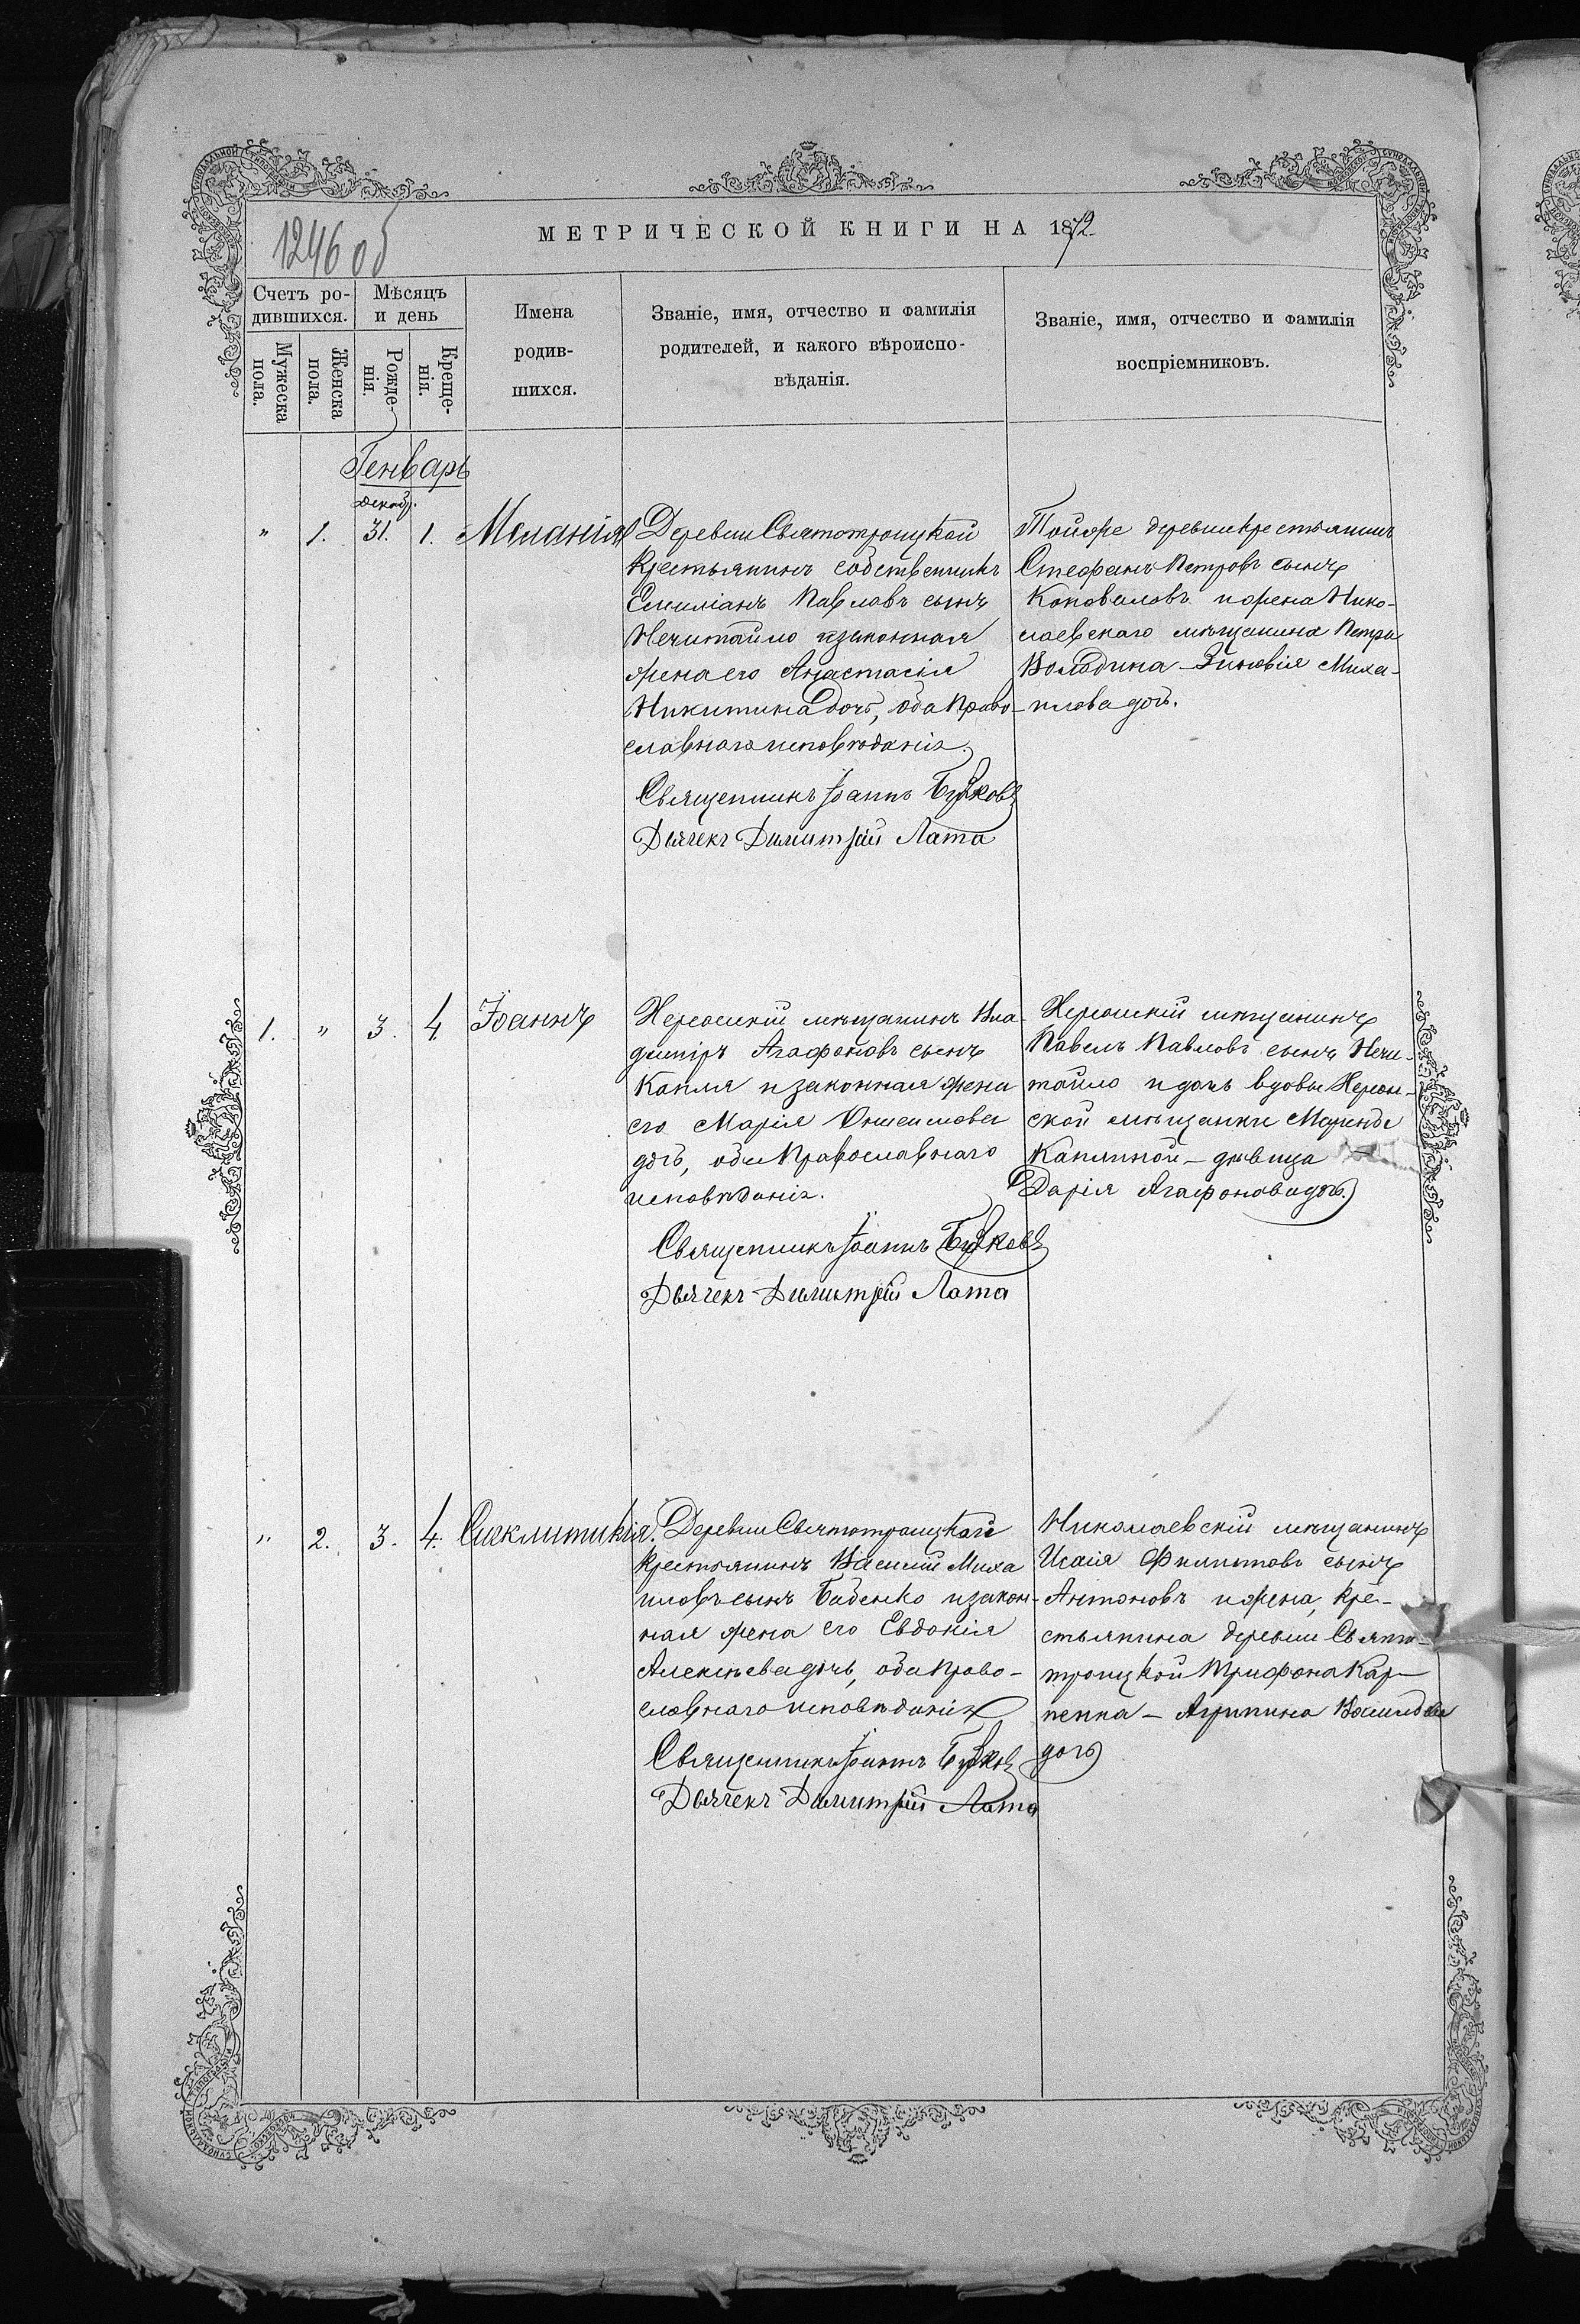 1246 об
МЕТРИЧЕСКОЙ КНИГИ НА 1872
Счетъ ро-
дившихся.
Мѣсяцъ
и день
Мужеска
пола.
Женска
пола.
Рожде-
нія.
Креще-
нія.
Имена
родив-
шихся.
Званіе, имя, отчество и фамилія
родителей, и какого вѣроиспо-
вѣданія.
Званіе, имя, отчество и фамилія
воспріемниковъ.
Генварь
декаб.
" 1. 31. 1. Меланія
Деревни Святотроицкой
крестьянинъ собственникъ
Емиліанъ Павловъ сынъ
Нечитайло и законная
жена его Анастасія
Никитина дочь, оба Право-
славнаго исповѣданія.
Священникъ Іоаннъ
Дьячекъ Димитрій Лата
Тойже деревни крестьянинъ
Стефанъ Петровъ сынъ
Коноваловъ и жена Нико-
лаевскаго мѣщанина Петра
Володина - Зиновія Миха-
илова дочь.
1. " 3. 4. Іоаннъ
Херсонскій мѣщанинъ Вла-
диміръ Агафоновъ сынъ
Капля и законная жена
его Марія Онисимова
дочь, оба Православнаго
исповѣданія.
Священникъ Іоаннъ
Дьячекъ Димитрій Лата
Херсонскій мѣщанинъ
Павелъ Павловъ сынъ Нечи-
тайло и дочь вдовы Херсон-
ской мѣщанки
Каплиной - дѣвица
Дарія Агафонова дочь.
" 2. 3. 4. Синклитикія.
Деревни Святотроицкой
крестьянинъ Василій Миха
иловъ сынъ Баденко и закон-
ная жена его Евдокія
Алексѣева дочь, оба Право-
славнаго исповѣданія
Священникъ Іоаннъ
Дьячекъ Димитрій Лата
Николаевскій мѣщанинъ
Исаія Филиповъ сынъ
Антоновъ и жена, кре-
стьянина деревни Свято-
троицкой Трифона Кар-
пенка - Агрипина
дочь